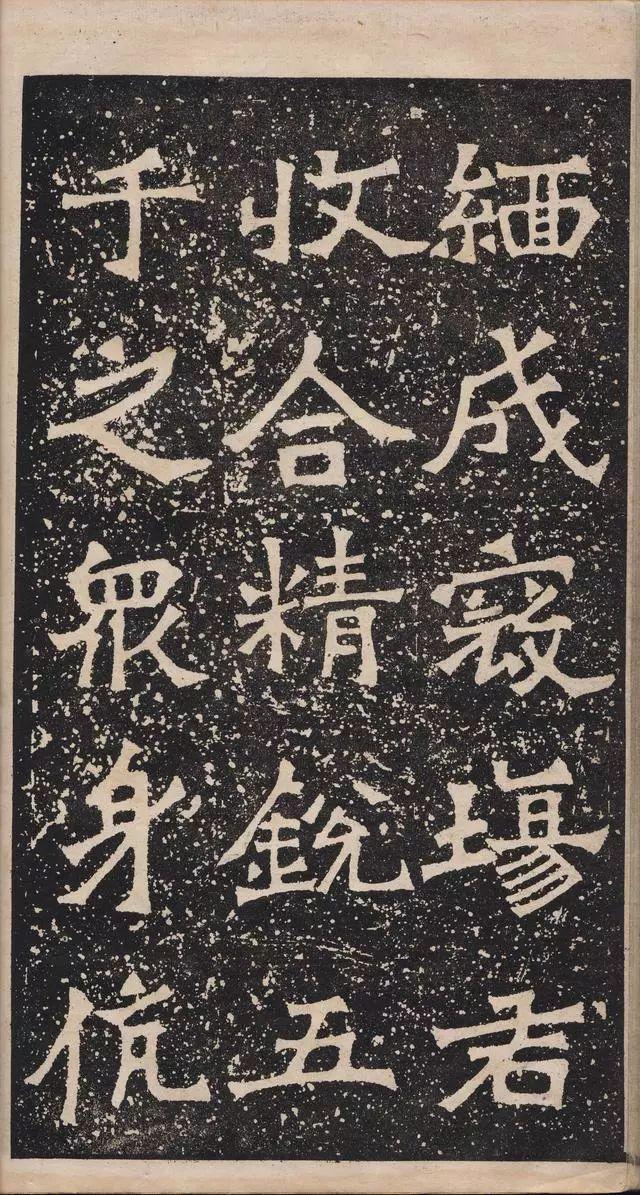 緬成寇場君
收合精銳五
千之眾身伉